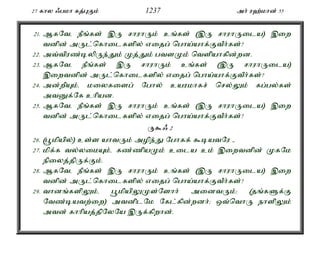 27 கால ஃபமா கத்புகும் 1237 அர் ரஹ்மான் 55
21. ஆகவே, நீங்கள் இரு சாராரும் உங்கள் (இரு சாராருடைய) இறை
வனின் அருட்கொடைகளில் எதைப் பொய்யாக்குவீர்கள்?
22. அவ்விரண்டிலிருந்தும் முத்தும் பவளமும் வெளியாகின்றன.
23. ஆகவே, நீங்கள் இரு சாராரும் உங்கள் (இரு சாராருடைய)
இறைவனின் அருட்கொடைகளில் எதைப் பொய்யாக்குவீர்கள்?
24. அன்றியும், மலைகளைப் போல் உயரமாகச் செல்லும் கப்பல்கள்
அவனுக்கே உரியன.
25. ஆகவே, நீங்கள் இரு சாராரும் உங்கள் (இரு சாராருடைய) இறை
வனின் அருட்கொடைகளில் எதைப் பொய்யாக்குவீர்கள்?
ருகூஃ 2
26. (பூமியில்) உள்ள யாவரும் அழிந்து போகக் கூடியவரே –
27. மிக்க வல்லமையும், கண்ணியமும் உடைய உம் இறைவனின் முகமே
நிலைத்திருக்கும்.
28. ஆகவே, நீங்கள் இரு சாராரும் உங்கள் (இரு சாராருடைய) இறை
வனின் அருட்கொடைகளில் எதைப் பொய்யாக்குவீர்கள்?
29. வானங்களிலும், பூமியிலுமுள்ளோர் அனைவரும்; (தங்களுக்கு
வேண்டியவற்றை) அவனிடமே கேட்கின்றனர்; ஒவ்வொரு நாளிலும்
அவன் காரியத்திலேயே இருக்கிறான்.